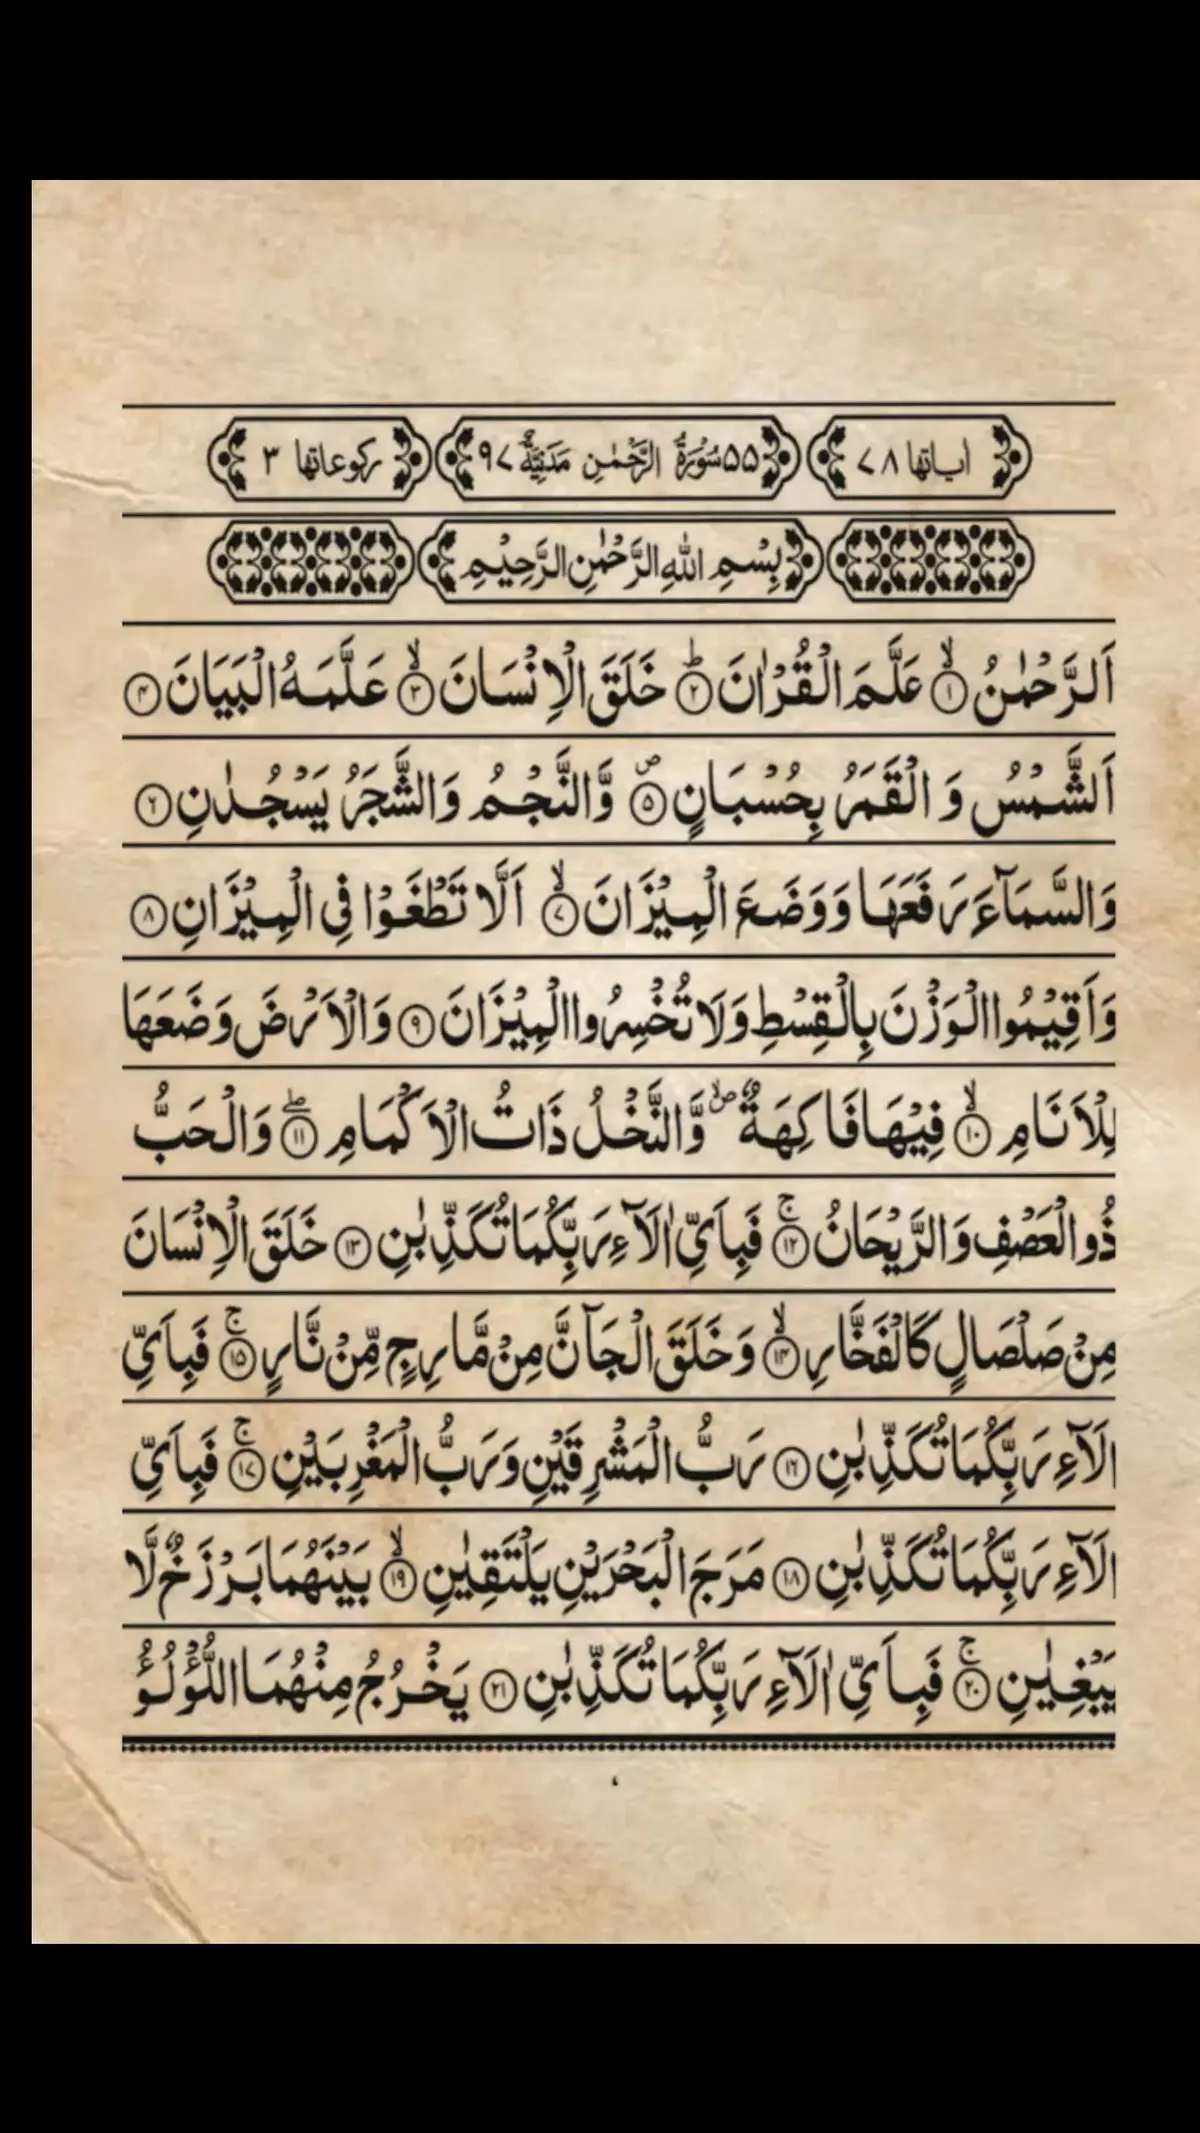 اٰیاتها ۷۸ ۵۵ سُوْرَةُ الرَّحْمٰنِ مَدَنِیَّةٌ ۹۷ رکوعاتها ۳
بِسْمِ اللهِ الرَّحْمٰنِ الرَّحِيْمِ
اَلرَّحْمٰنُ ۙ﴿۱﴾ عَلَّمَ الْقُرْاٰنَ ؕ﴿۲﴾ خَلَقَ الْاِنْسَانَ ۙ﴿۳﴾ عَلَّمَهُ الْبَيَانَ ﴿۴﴾
اَلشَّمْسُ وَ الْقَمَرُ بِحُسْبَانٍ ۪﴿۵﴾ وَّالنَّجْمُ وَالشَّجَرُ يَسْجُدٰنِ ﴿۶﴾
وَالسَّمَآءَ رَفَعَهَا وَوَضَعَ الْمِيْزَانَ ۙ﴿۷﴾ اَلَّا تَطْغَوْا فِى الْمِيْزَانِ ﴿۸﴾
وَاَقِيْمُوا الْوَزْنَ بِالْقِسْطِ وَلَا تُخْسِرُوا الْمِيْزَانَ ﴿۹﴾ وَالْاَرْضَ وَضَعَهَا
لِلْاَنَامِ ۙ﴿۱۰﴾ فِيْهَا فَاكِهَةٌ ۪ۙ وَّالنَّخْلُ ذَاتُ الْاَكْمَامِ ۖ﴿۱۱﴾ وَالْحَبُّ
ذُو الْعَصْفِ وَالرَّيْحَانُ ۚ﴿۱۲﴾ فَبِاَىِّ اٰلَآءِ رَبِّكُمَا تُكَذِّبٰنِ ﴿۱۳﴾ خَلَقَ الْاِنْسَانَ
مِنْ صَلْصَالٍ كَالْفَخَّارِ ۙ﴿۱۴﴾ وَخَلَقَ الْجَآنَّ مِنْ مَّارِجٍ مِّنْ نَّارٍ ۚ﴿۱۵﴾ فَبِاَىِّ
اٰلَآءِ رَبِّكُمَا تُكَذِّبٰنِ ﴿۱۶﴾ رَبُّ الْمَشْرِقَيْنِ وَرَبُّ الْمَغْرِبَيْنِ ۚ﴿۱۷﴾ فَبِاَىِّ
اٰلَآءِ رَبِّكُمَا تُكَذِّبٰنِ ﴿۱۸﴾ مَرَجَ الْبَحْرَيْنِ يَلْتَقِيٰنِ ۙ﴿۱۹﴾ بَيْنَهُمَا بَرْزَخٌ لَّا
يَبْغِيٰنِ ۚ﴿۲۰﴾ فَبِاَىِّ اٰلَآءِ رَبِّكُمَا تُكَذِّبٰنِ ﴿۲۱﴾ يَخْرُجُ مِنْهُمَا اللُّؤْلُؤُ